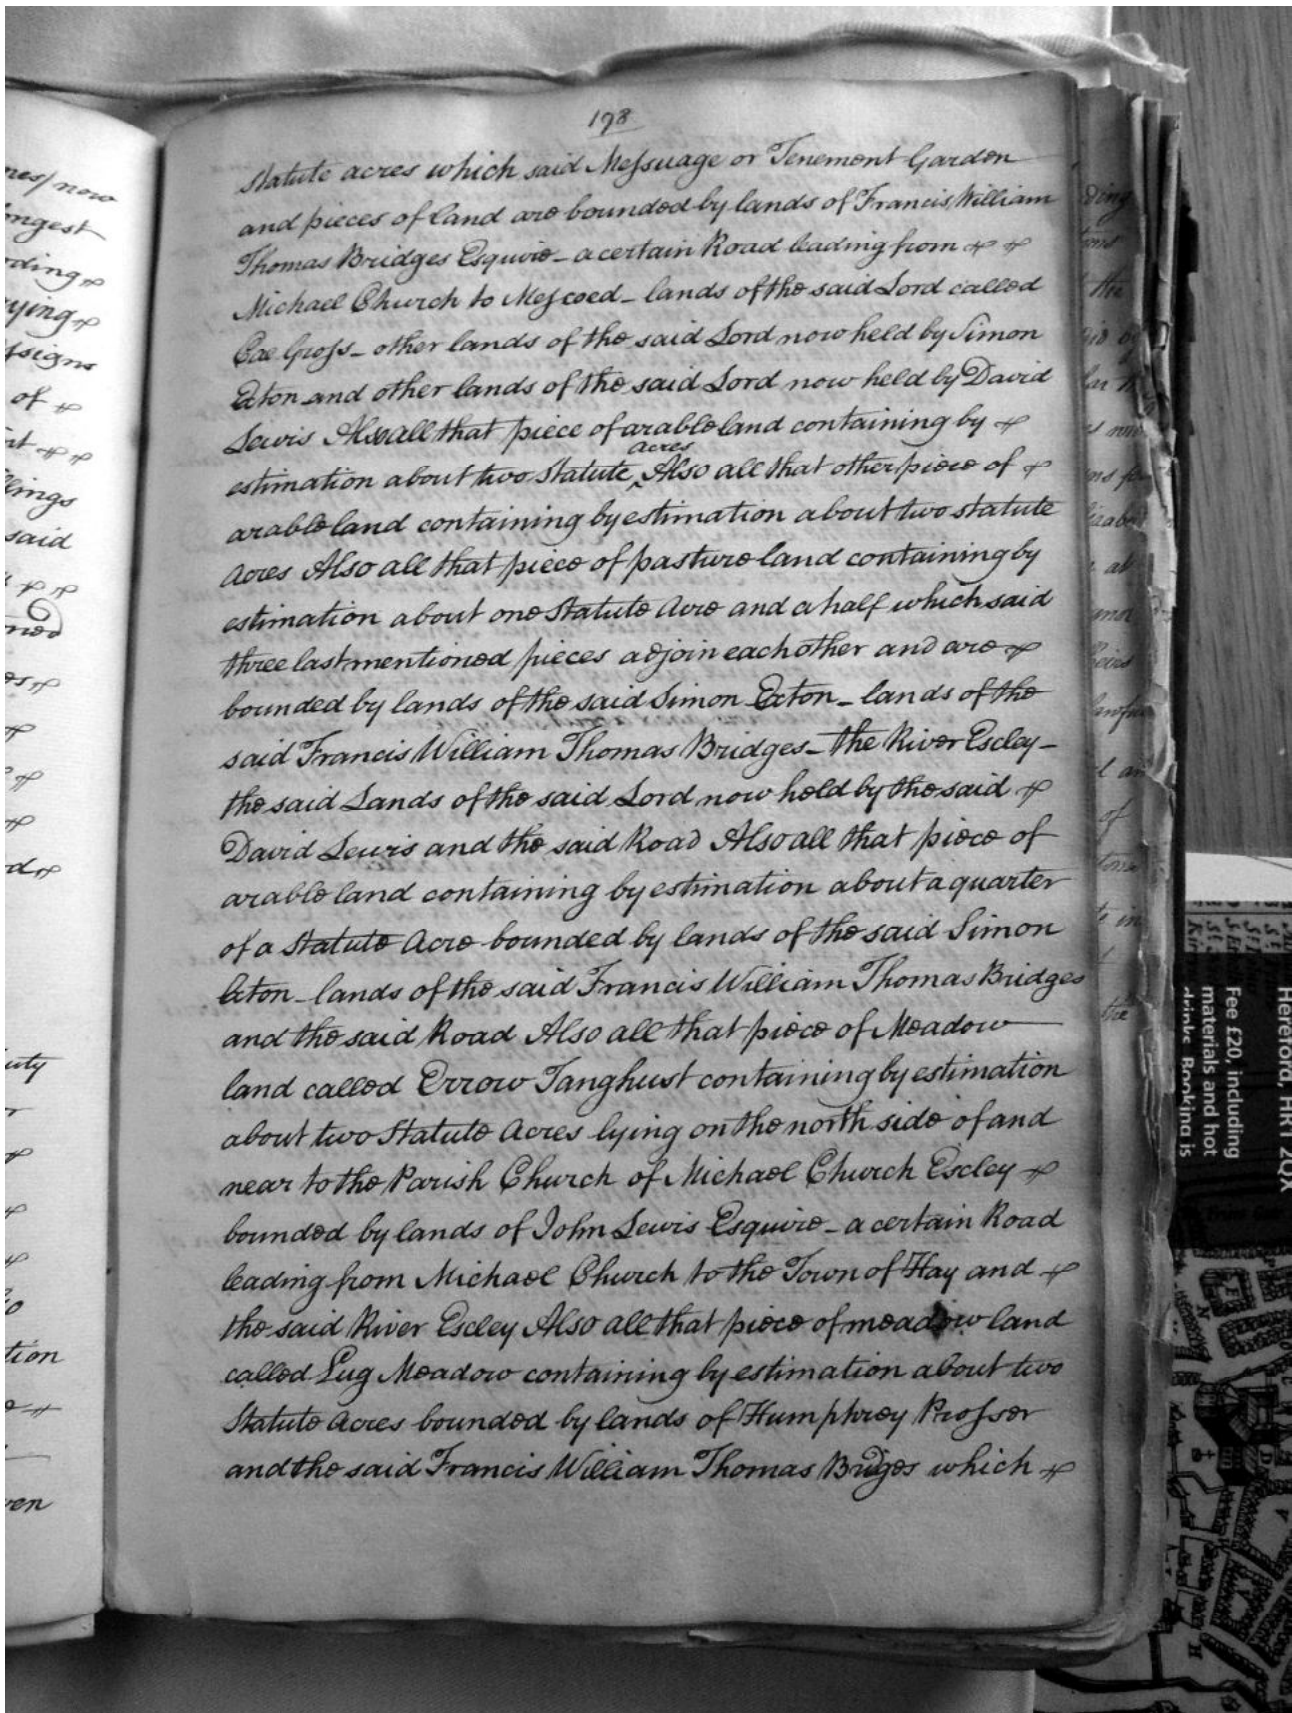 198
statute acres which said Messuage or Tenement Garden
and pieces of land are bounded by lands of Francis William
Thomas Bridges Esquire – a certain Road leading from
Michael Church to Mescoed – lands of the said Lord called
Cae Gross – other lands of the said Lord now held by Simon
Exton and other lands of the said Lord now held by David
Lewis Also all that piece of arable land containing by
estimation about two Statute ^acres Also all that other piece of
arable land containing by estimation about two statute
Acres Also all that piece of pasture land containing by
estimation about one Statute Acre and a half which said
three last mentioned pieces adjoin each other and are
bounded by lands of the said Simon Exton – lands of the
said Francis William Thomas Bridges – the River Escley –
the said Lands of the said Lord now held by the said
David Lewis and the said Road Also all that piece of
arable land containing by estimation about a quarter
of a Statute Acre bounded by lands of the said Simon
Exton – lands of the said Francis William Thomas Bridges
and the said Road Also all that piece of Meadow
land called Errow Tanghust containing by estimation
about two Statute Acres lying on the north side of and
near to the Parish Church of Michael Church Escley
bounded by lands of John Lewis Esquire – a certain Road
leading from Michael Church to the Town of Hay and
the said River Escley Also all that piece of meadow land
called Lug Meadow containing by estimation about two
Statute Acres bounded by lands of Humphrey Prosser
and the said Francis William Thomas Bridges which
now
ongest
said
of
uty
tion
Hereford, HR1 2QX
Fee £20, including
materials and hot
drinks Booking is